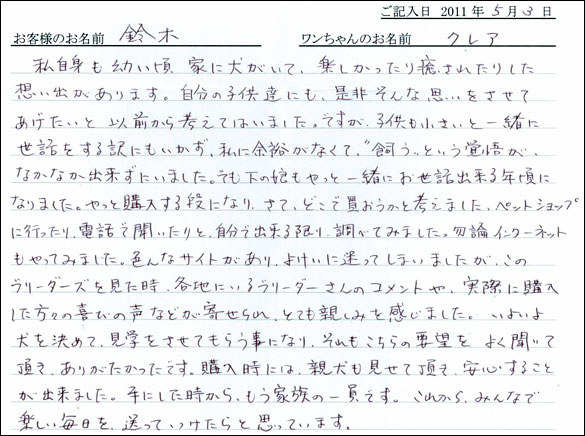 ご記入日 2011年5月3日
お客様のお名前 鈴木 ワンちゃんのお名前 クレア
私自身も幼い頃 家に犬がいて、楽しかったり癒されたりした
想い出があります。自分の子供達にも、是非そんな思いをさせて
あげたいと 以前から考えてはいました。ですが、子供も小さいと一緒に
世話をする訳にもいかず、私に余裕がなくて、"飼う"という覚悟が、
なかなか出来ずにいました。でも下の娘もやっと一緒にお世話出来る年頃に
なりました。やっと購入する段になり、さて、どこで買おうかと考えました、ペットショップ
に行ったり、電話で聞いたりと、自分で出来る限り、調べてみました。勿論インターネット
もやってみました。色んなサイトがあり、よけいに迷ってしまいましたが、この
ブリーダーズを見た時、各地にいるブリーダーさんのコメントや、実際に購入
した方々の喜びの声などが寄せられ、とても親しみを感じました。いよいよ
犬を決めて、見学をさせてもらう事になり、それもこちらの要望をよく聞いて
頂き、ありがたかったです。購入時には、親犬も見せて頂き、安心すること
が出来ました。手にした時から、もう家族の一員です。これから、みんなで
楽しい毎日を、送っていけたらと思っています。